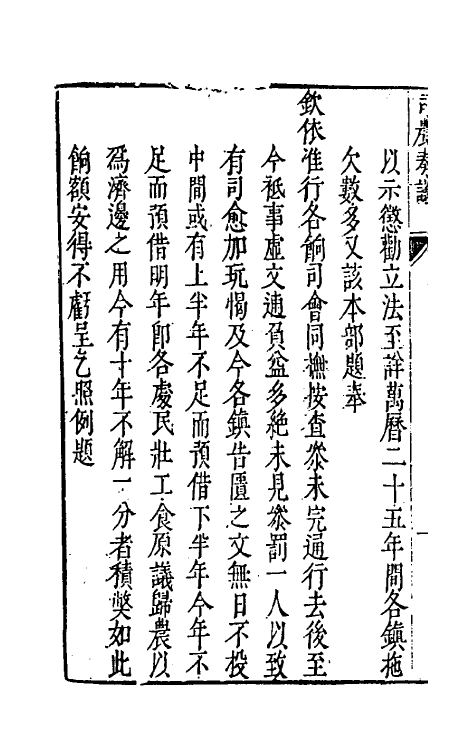 司農奏議
以示懲勸立法至詳萬曆二十五年間各鎮拖
欠數多又該本部題奉
欽依准行各餉司會同撫按查叅未完通行去後至
今祗事虛文逋負益多絶未見叅罰一人以致
有司愈加玩愒及今各鎮告匱之文無日不投
中間或有上半年不足而預借下半年今年不
足而預借明年卽各處民壯工食原議歸農以
爲濟邊之用今有十年不解一分者積獘如此
餉額安得不虧呈乞照例題